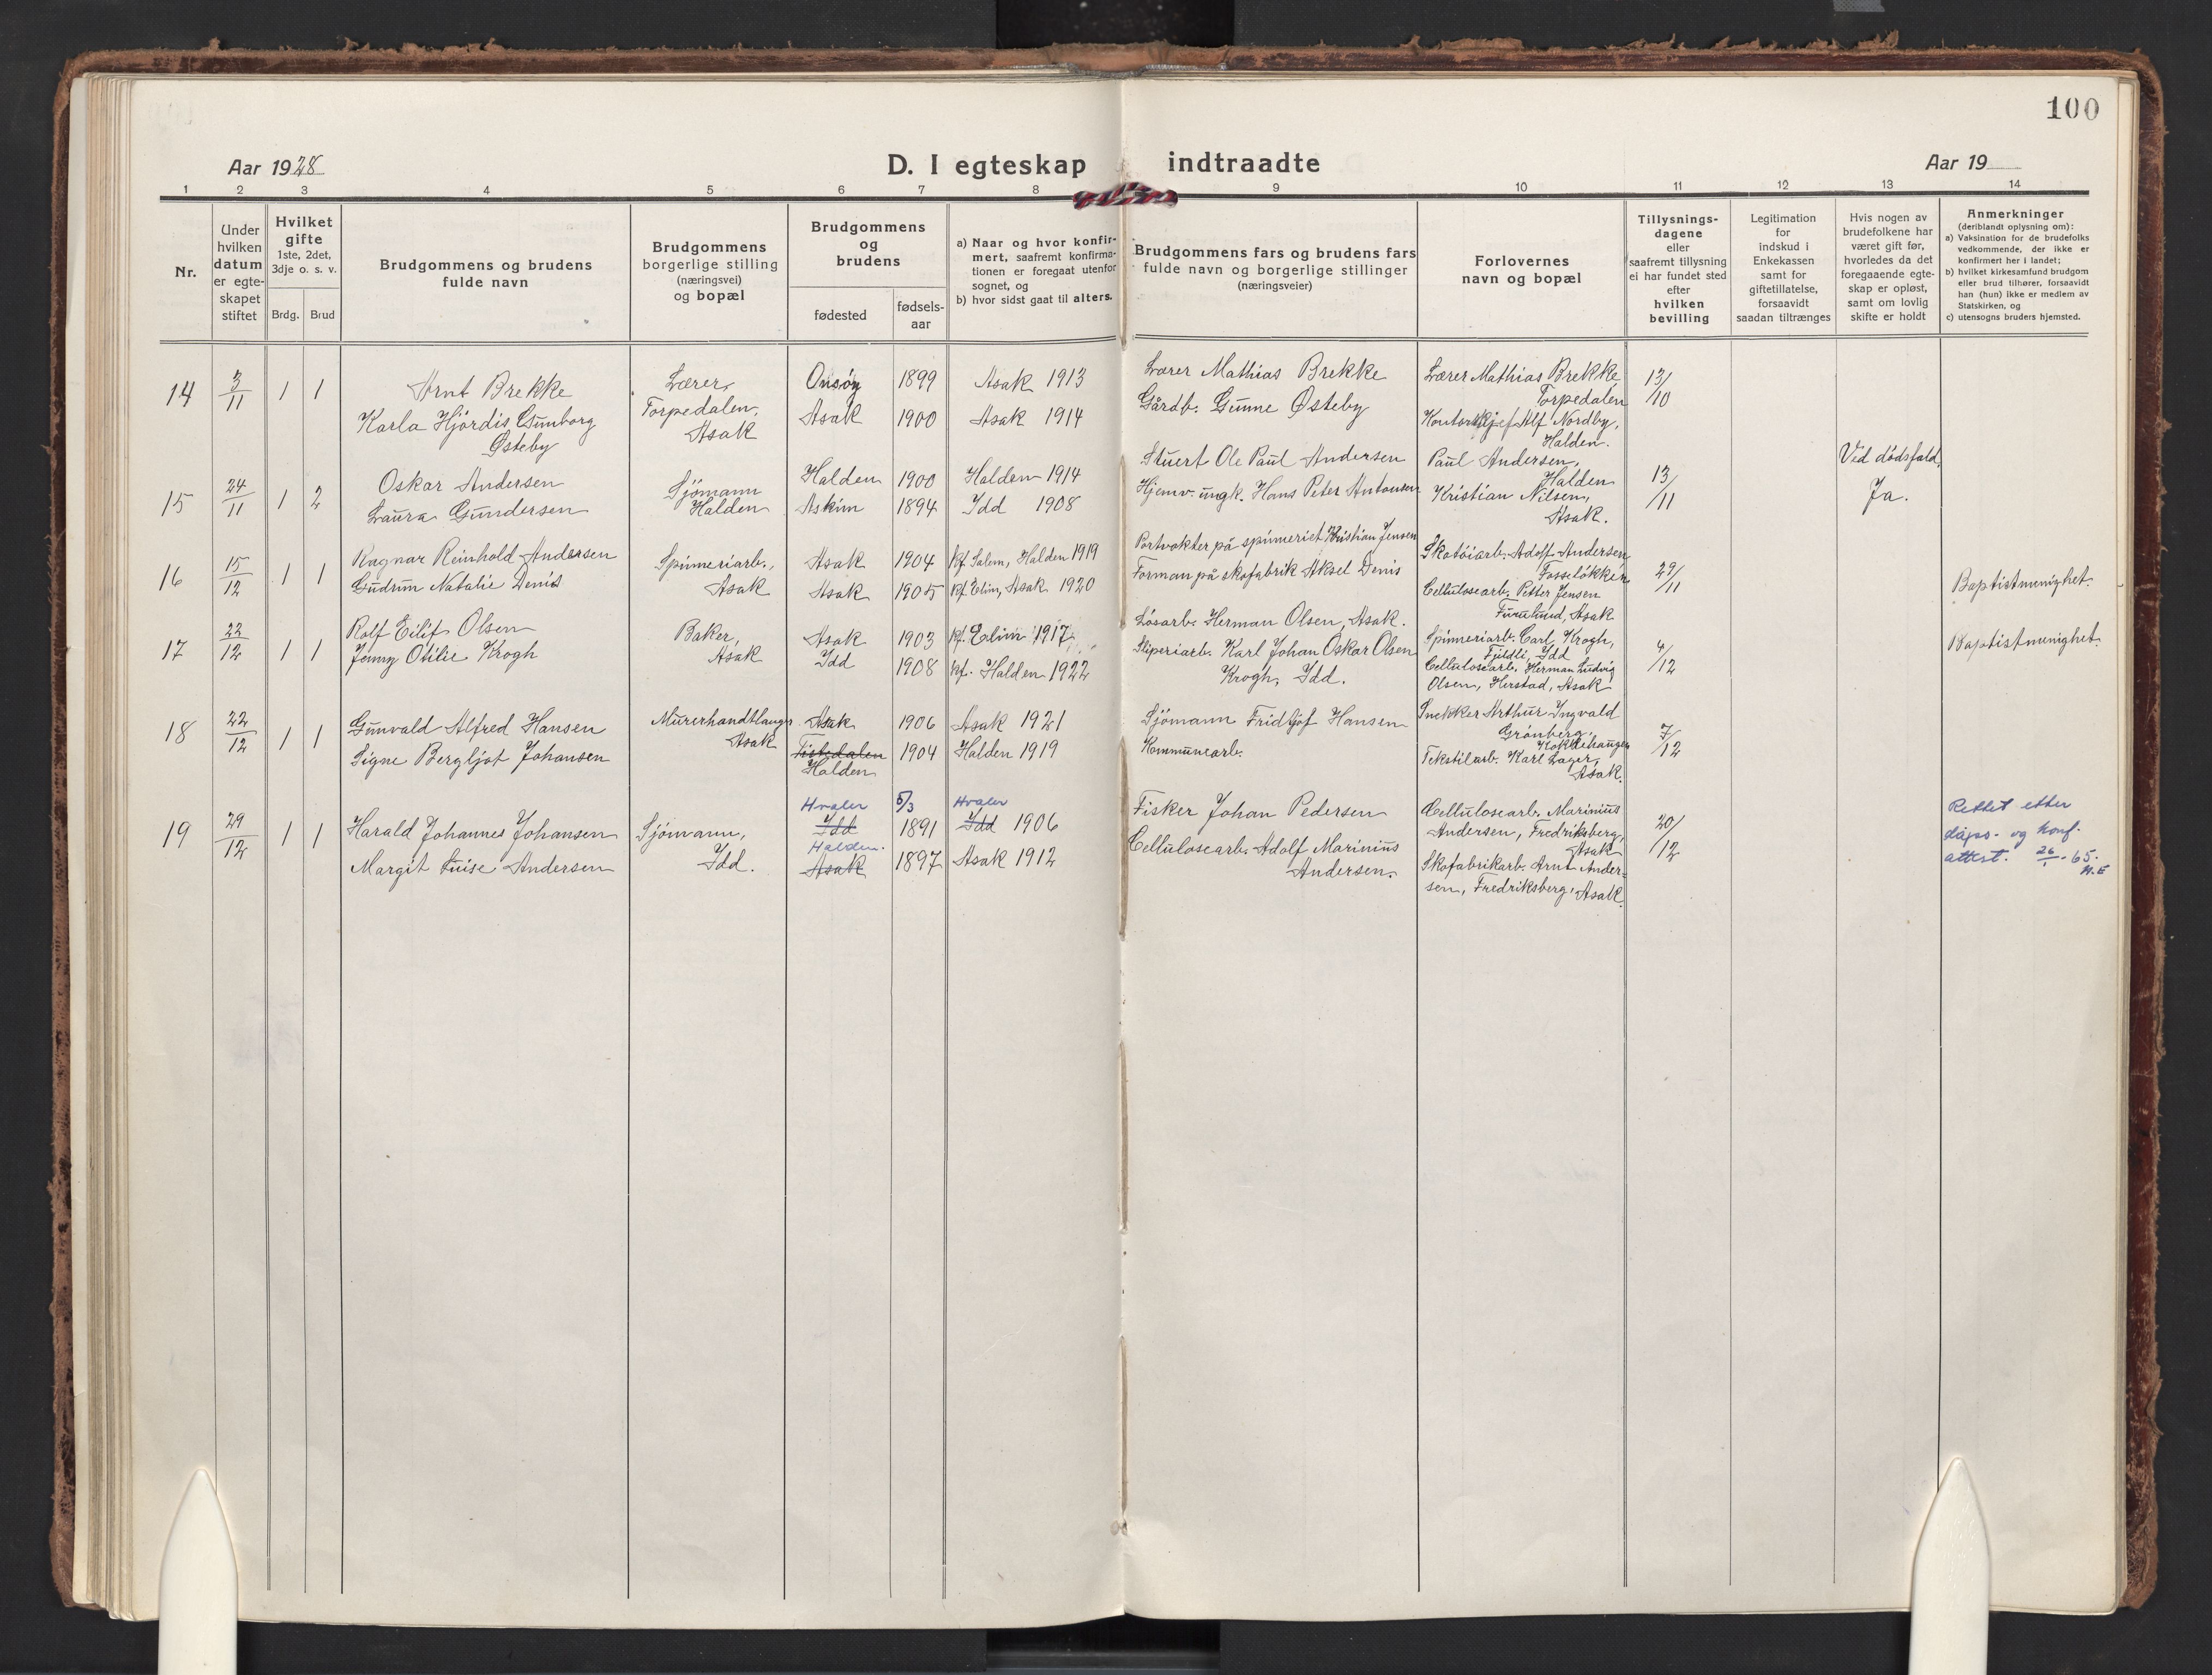 100
Aar 1928
D. I egteskap indtraadte
Aar 19
1 2 3 4 5 6 7 8 9 10 11 12 13 14
Nr.
Under
hvilken
datum
er egte-
skapet
stiftet
Hvilket
gifte
1ste, 2det,
3dje o. s. v.
Brdg. Brud
Brudgommens og brudens
fulde navn
Brudgommens
borgerlige stilling
(næringsvei)
og bopæl
Brudgommens
og
brudens
fødested
fødsels-
aar
a) Naar og hvor konfir-
mert, saafremt konfirma-
tionen er foregaat utenfor
sognet, og
b) hvor sidst gaat til alters.
Brudgommens fars og brudens fars
fulde navn og borgerlige stillinger
(næringsveier)
Forlovernes
navn og bopæl
Tillysnings-
dagene
eller
saafremt tillysning
ei har fundet sted
efter
hvilken
bevilling
Legitimation
for
indskud i
Enkekassen
samt for
giftetillatelse,
forsaavidt
saadan tiltrænges
Hvis nogen av
brudefolkene har
været gift før,
hvorledes da det
foregaaende egte-
skap er opløst,
samt om lovlig
skifte er holdt
Anmerkninger
(deriblandt oplysning om):
a) Vaksination for de brudefolks
vedkommende, der ikke er
konfirmert her i landet;
b) hvilket kirkesamfund brudgom
eller brud tilhører, forsaavidt
han (hun) ikke er medlem av
Statskirken, og
c) utensogns bruders hjemsted.
14
3/11
1 1
Arnt Brekke
Karla Hjördis Gunborg
Østeby
Lærer,
Torpedalen,
Asak
Onsöy 1899 Asak 1913
Asak 1900 Asak 1914
Lærer Mathias Brekke
Gårdb. Gunne Østeby
Lærer Mathias Brekke
Torpedalen
Kontorskjef Alf Nordby,
Halden.
13/10
15
24/11
1 2
Oskar Andersen
Laura Gundersen
Sjömann
Halden
Halden 1900 Halden 1914
Askim 1894 Idd 1908
Stuert Ole Paul Andersen
Hjemv. ungk. Hans Peter Antonsen
Paul Andersen,
Halden
Kristian Nilsen,
Asak.
13/11
Ved dödsfald,
Ja.
16
15/12
1 1
Ragnar Reinhold Andersen
Gudrun Natalie Denis
Spinneriarb.,
Asak
Asak 1904 Kf. Salem, Halden 1919
Asak 1905 Kf. Elim, Asak 1920
Portvakter på spinneriet Kristian Jensen
Forman på skofabrik Aksel Denis
Skotöiarb. Adolf Andersen
Fosselökken
Cellulosearb. Petter Jensen
Furulund, Asak
29/11
Baptistmenighet.
17
22/12
1 1
Rolf Eilif Olsen
Jenny Otilie Krogh
Baker,
Asak
Asak 1903 Kf. Elim 1917
Idd 1908 Kf. Halden 1922
Lösarb. Herman Olsen, Asak.
Sliperiarb. Karl Johan Oskar Olsen
Krogh, Idd.
Spinneriarb. Carl Krogh,
Idd
Cellulosearb. Herman Ludvig
Olsen, Herstad, Asak
4/12
Baptistmenighet.
18
22/12
1 1
Gunvald Alfred Hansen
Signe Bergljot Johansen
Murerhandtlanger
Asak
Asak 1906 Asak 1921
Tistedalen 1904 Halden 1919
Halden
Sjömann Fridtjof Hansen
Kommunearb.
Snekker Arthur Ingvald
Grönberg,
Tekstilarb. Karl Lager,
Asak.
7/12
19
29/12
1 1
Harald Johannes Johansen
Margit Luise Andersen
Sjömann,
Idd.
Hvaler 5/3 Hvaler
Idd 1891 Idd 1906
Halden.
Asak 1897 Asak 1912
Fisker Johan Pedersen
Cellulosearb. Adolf Marinius
Andersen.
Cellulosearb. Marinius
Andersen, Fredriksberg,
Asak
Skofabrikarb. Arne Ander-
sen, Fredriksberg, Asak.
20/12
Rettet etter
dåps- og konf.
attest. 26/1-65.